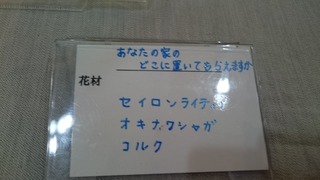 あなたの家の
どこに置いてもらえますか
花材
セイロンライティア
オキナワシャガ
コルク